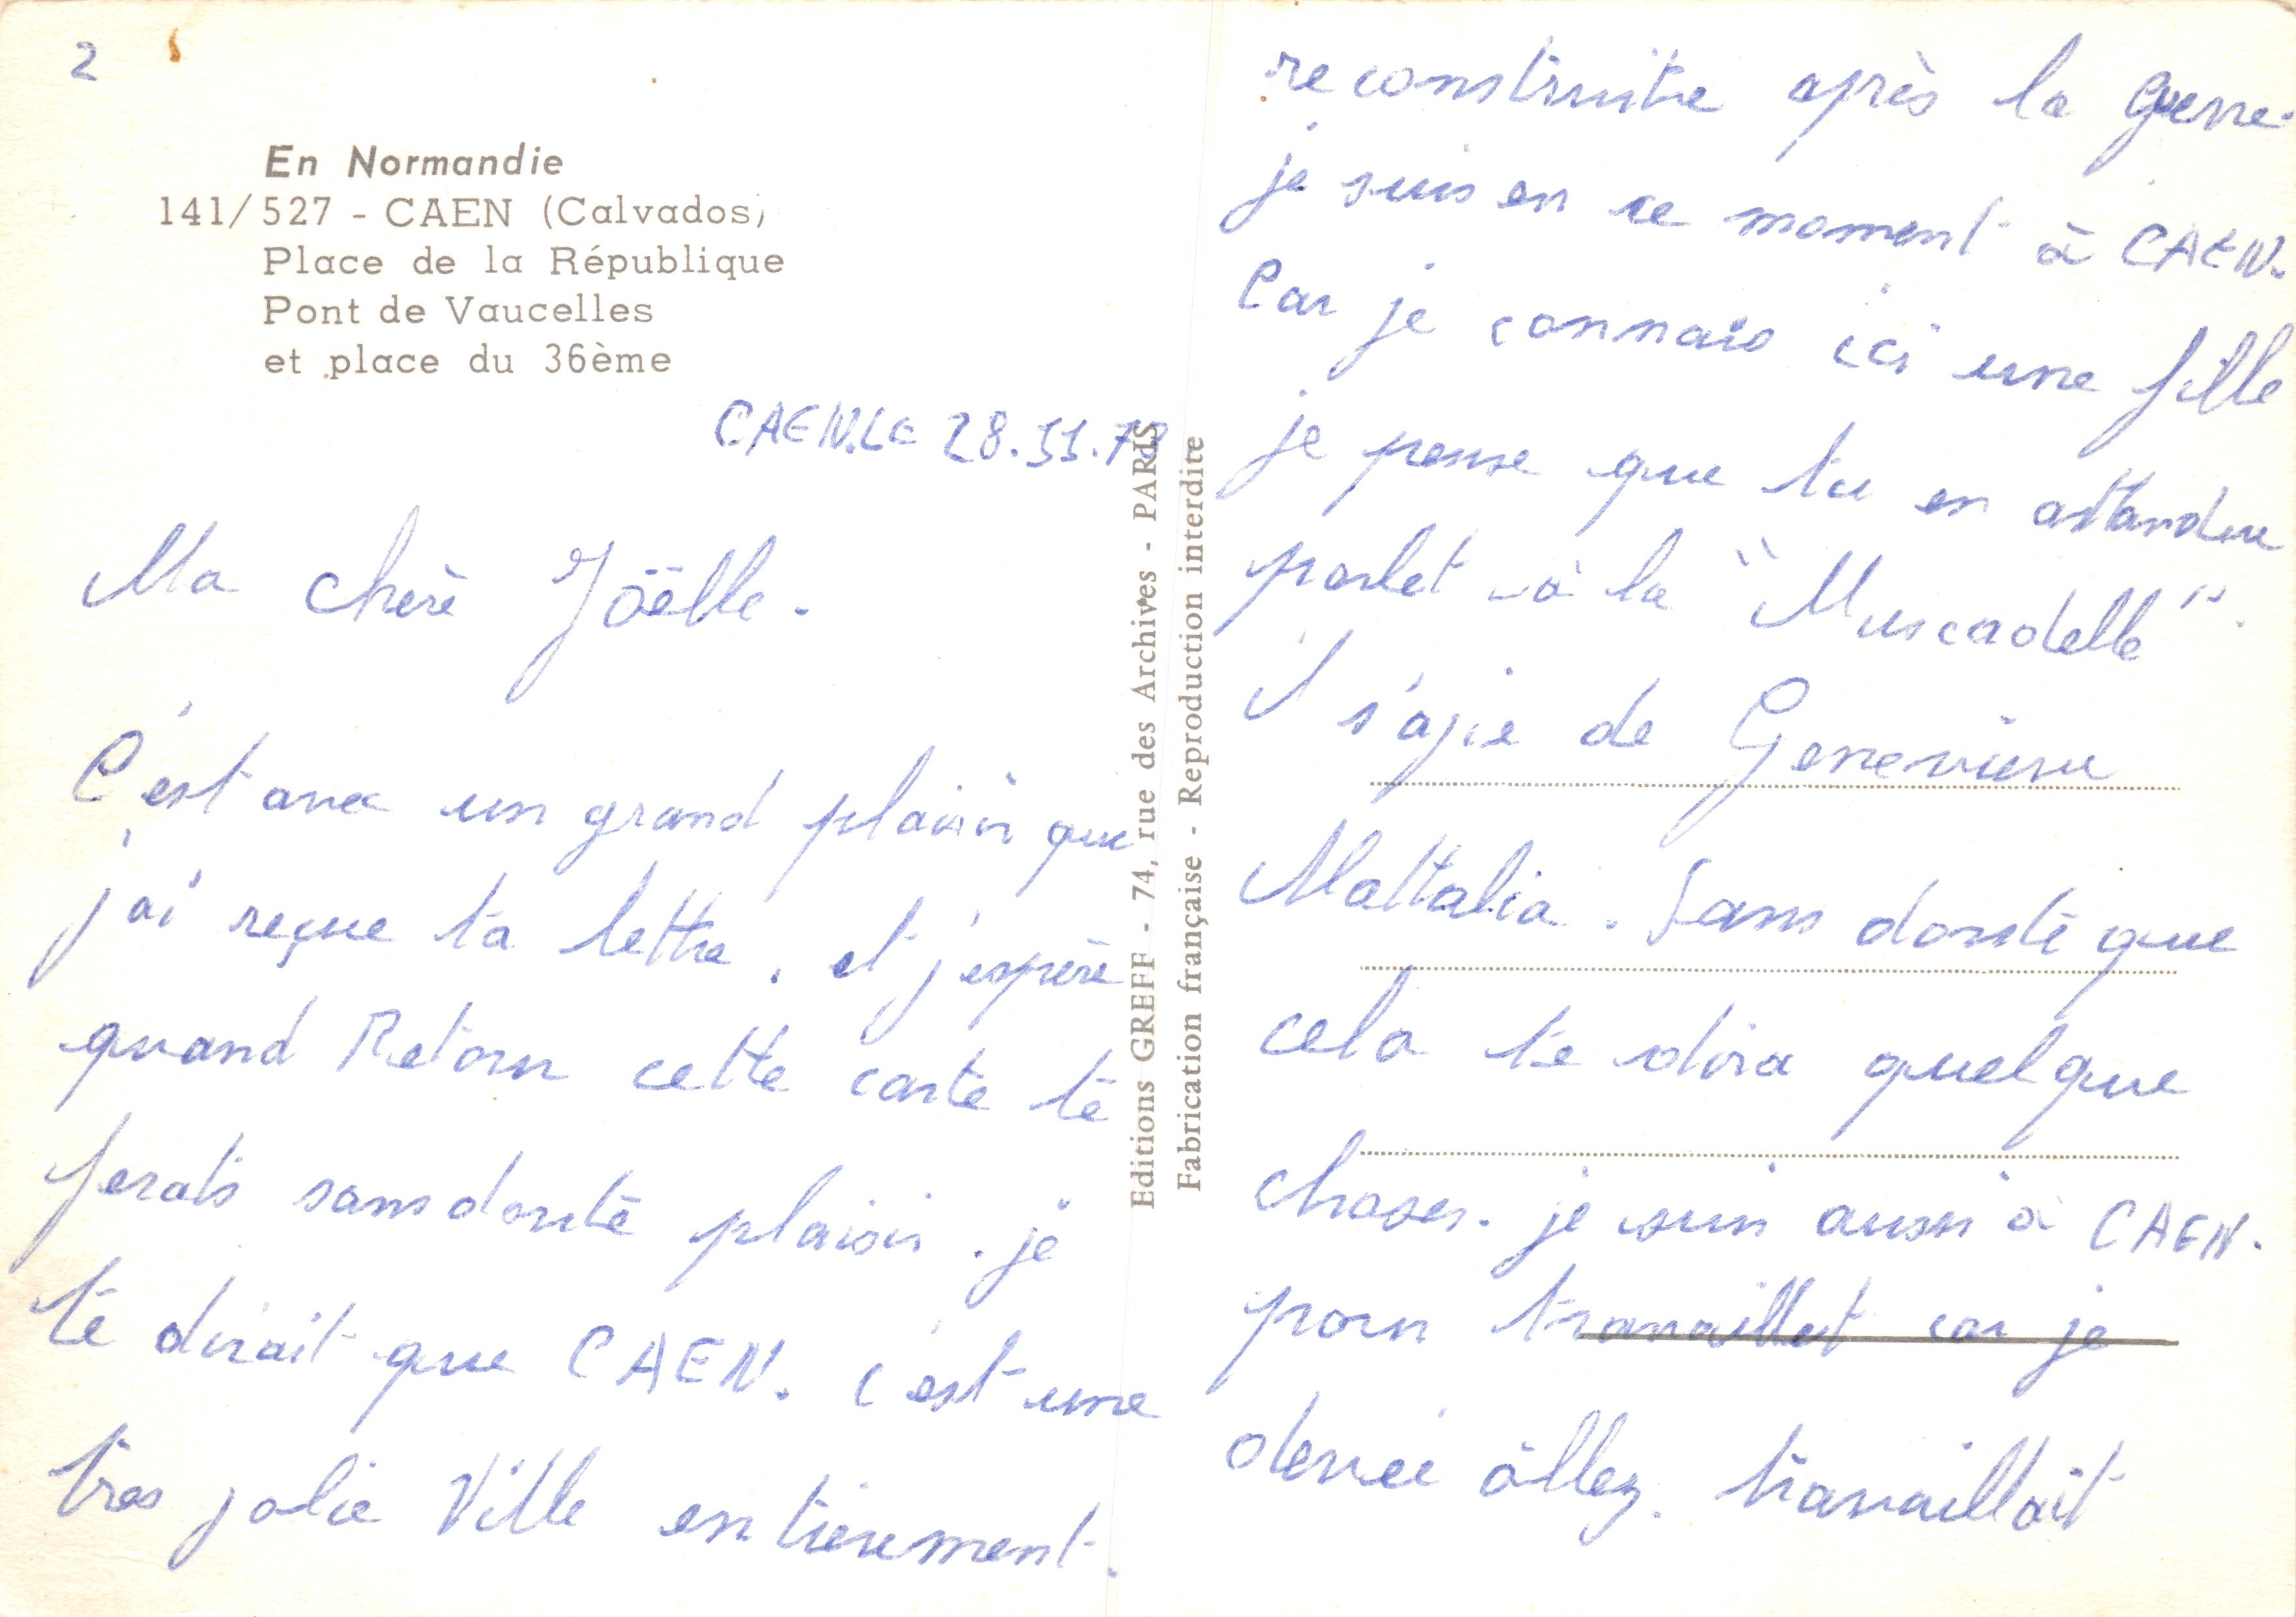 2
En Normandie
141/527 - CAEN (Calvados)
Place de la République
Pont de Vaucelles
et place du 36ème
CAEN.LE 28.11.
Ma chère Joëlle.
C'est avec un grand plaisir que
j'ai reçue ta lettre. et j'espère
quand Retour cette carte te
ferats sans doute plaisir. je
te dirait que CAEN. c'est une
tres jolie Ville entièrement.
Editions GREFF - 74, rue des Archives - PARIS
Fabrication française - Reproduction interdite
reconstruite après la Guerre.
je suis en ce moment à CAEN.
Car je connais ici une fille
je pense que tu en attandue
parlet à la "Muscadelle".
il s'agie de Genevieve
Mattalia. Sans doute que
cela te dira quelque
choses. je suis aussi à CAEN.
pour travaillet car je
devee àllez. travaillait